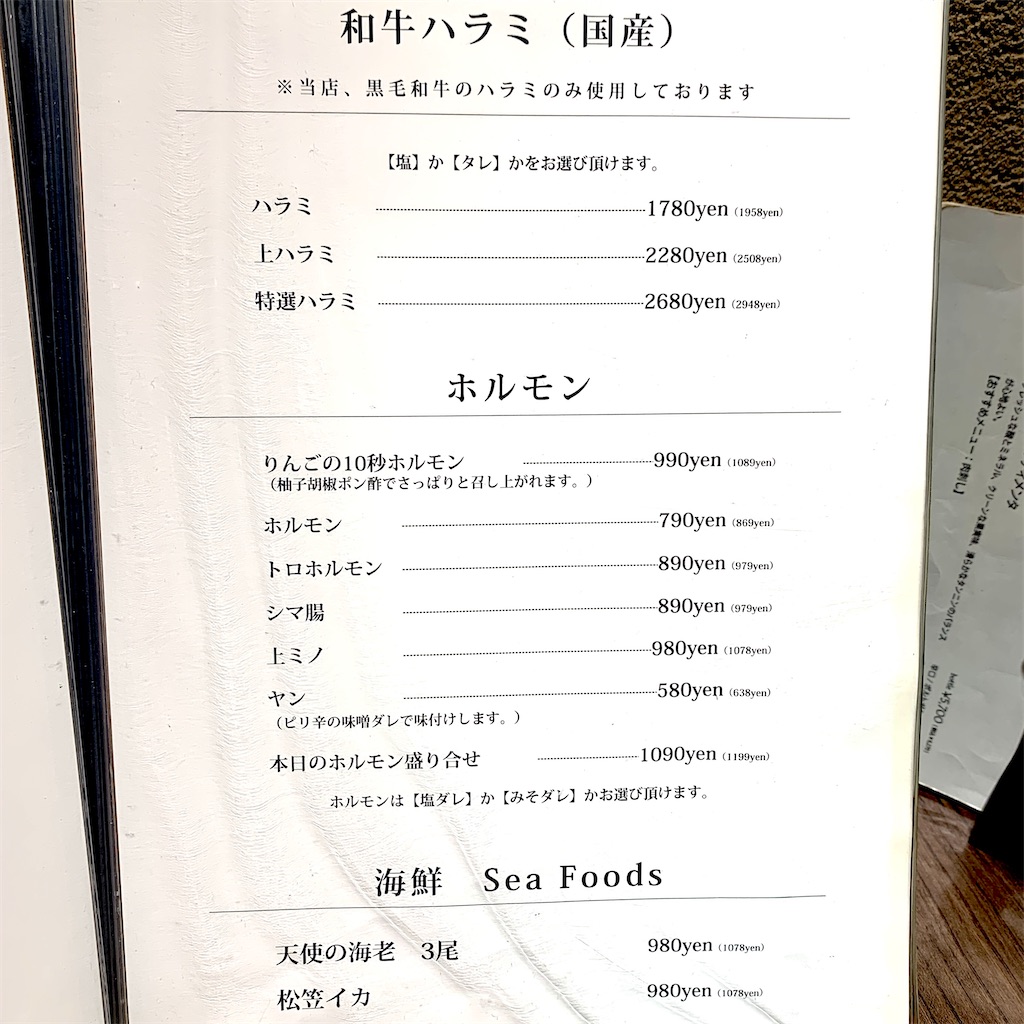 和牛ハラミ（国産）
※当店、黒毛和牛のハラミのみ使用しております
【塩】か【タレ】かをお選び頂けます。
ハラミ 1780yen（1958yen）
上ハラミ 2280yen（2508yen）
特選ハラミ 2680yen（2948yen）
ホルモン
りんごの10秒ホルモン 990yen（1089yen）
（柚子胡椒ポン酢でさっぱりと召し上がれます。）
ホルモン 790yen（869yen）
トロホルモン 890yen（979yen）
シマ腸 890yen（979yen）
上ミノ 980yen（1078yen）
ヤン 580yen（638yen）
（ピリ辛の味噌ダレで味付けします。）
本日のホルモン盛り合せ 1090yen（1199yen）
ホルモンは【塩ダレ】か【みそダレ】かお選び頂けます。
海鮮 Sea Foods
天使の海老 3尾 980yen（1078yen）
松笠イカ 980yen（1078yen）
【おすすめメニュー：肉刺し】
¥5,700